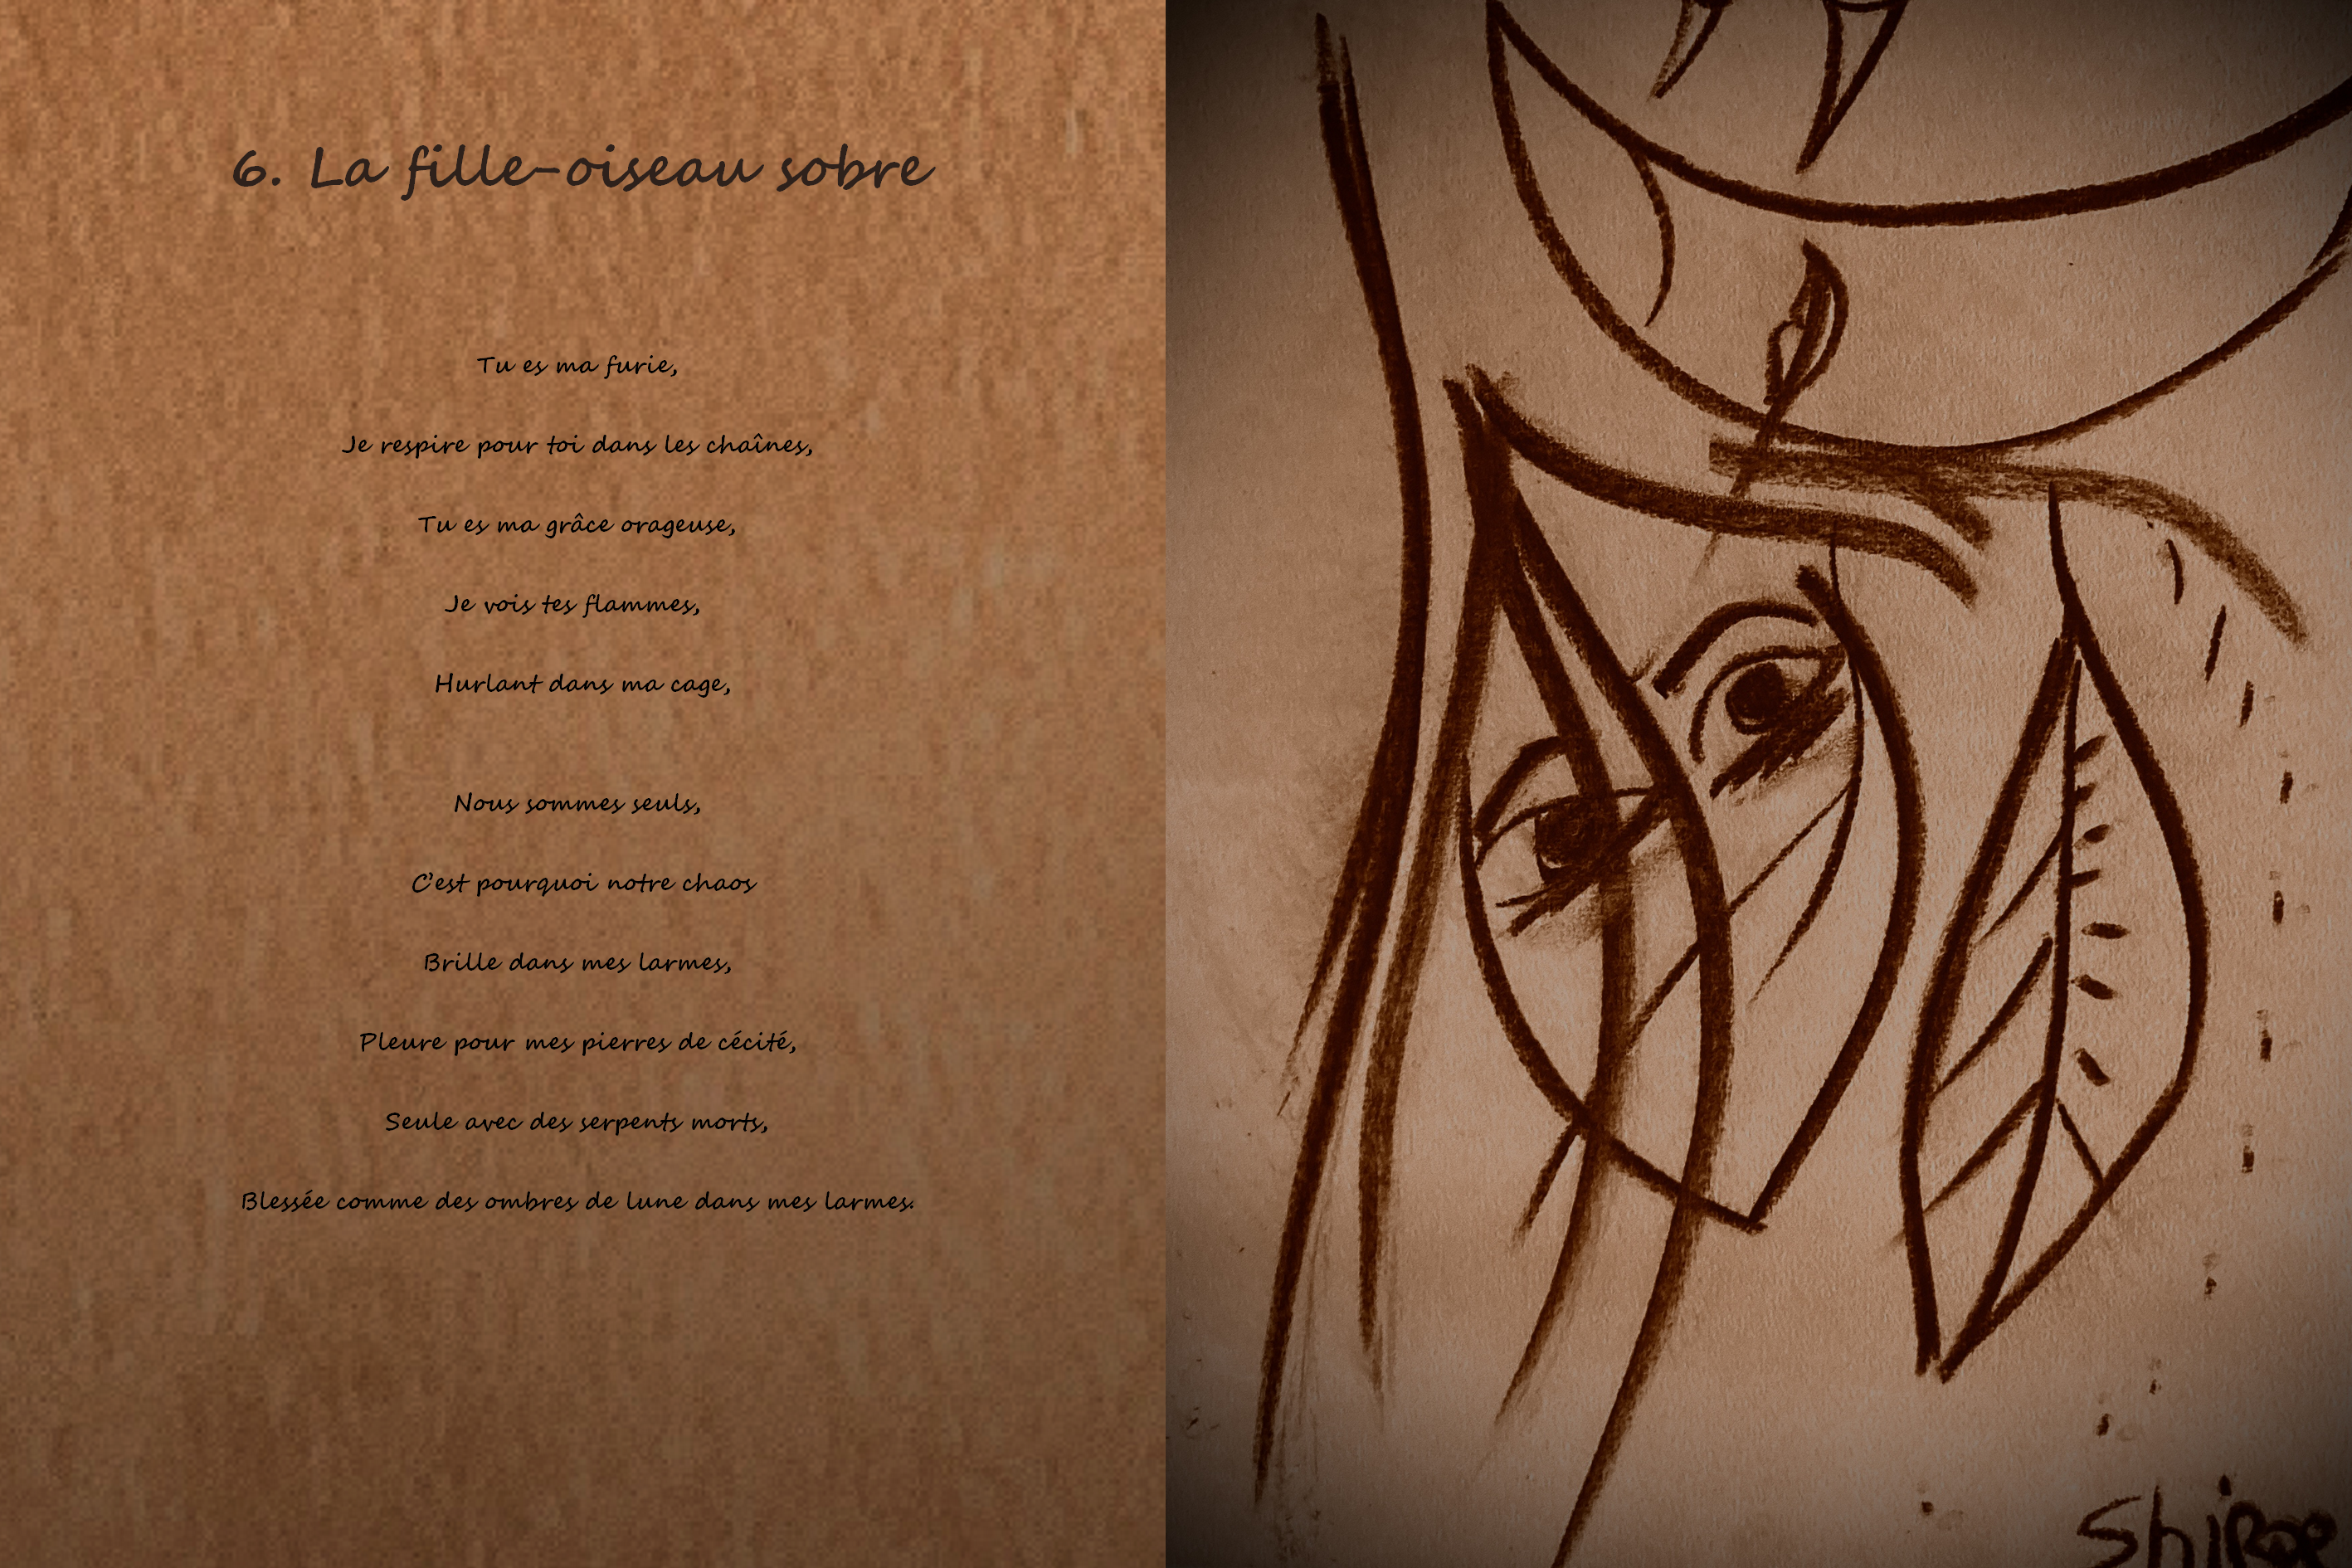 6. La fille-oiseau sobre
Tu es ma furie,
Je respire pour toi dans les chaînes,
Tu es ma grâce orageuse,
Je vois tes flammes,
Hurlant dans ma cage,
Nous sommes seuls,
C'est pourquoi notre chaos
Brille dans mes larmes,
Pleure pour mes pierres de cécité,
Seule avec des serpents morts,
Blessée comme des ombres de lune dans mes larmes.